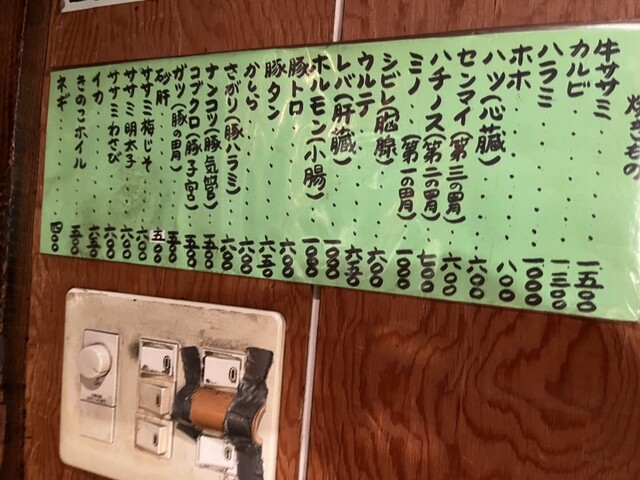 焼きもの
牛ササミ・・・・・一五〇〇
カルビ・・・・・一三〇〇
ハラミ・・・・・一〇〇〇
ホホ・・・・・八〇〇
ハツ(心臓)・・・六〇〇
センマイ(第三の胃)・六〇〇
ハチノス(第二の胃)七〇〇
ミノ(第一の胃)一〇〇〇
シビレ(胸腺)・・・六〇〇
ウルテ・・・・・六五〇
レバ(肝臓)・・・一〇〇〇
ホルモン(小腸)・一〇〇〇
豚トロ・・・・・六〇〇
豚タン・・・・・六五〇
かしら・・・・・六〇〇
さがり(豚ハラミ)・・六〇〇
ナンコツ(豚気管)・五〇〇
コブクロ(豚子宮)・五〇〇
ガツ(豚の胃)・・・五〇〇
砂肝・・・・・五〇〇
ササミ梅じそ・・・六〇〇
ササミ明太子・・・六〇〇
ササミわさび・・・六〇〇
イカ・・・・・六五〇
きのこホイル・・・五〇〇
ネギ・・・・・四〇〇